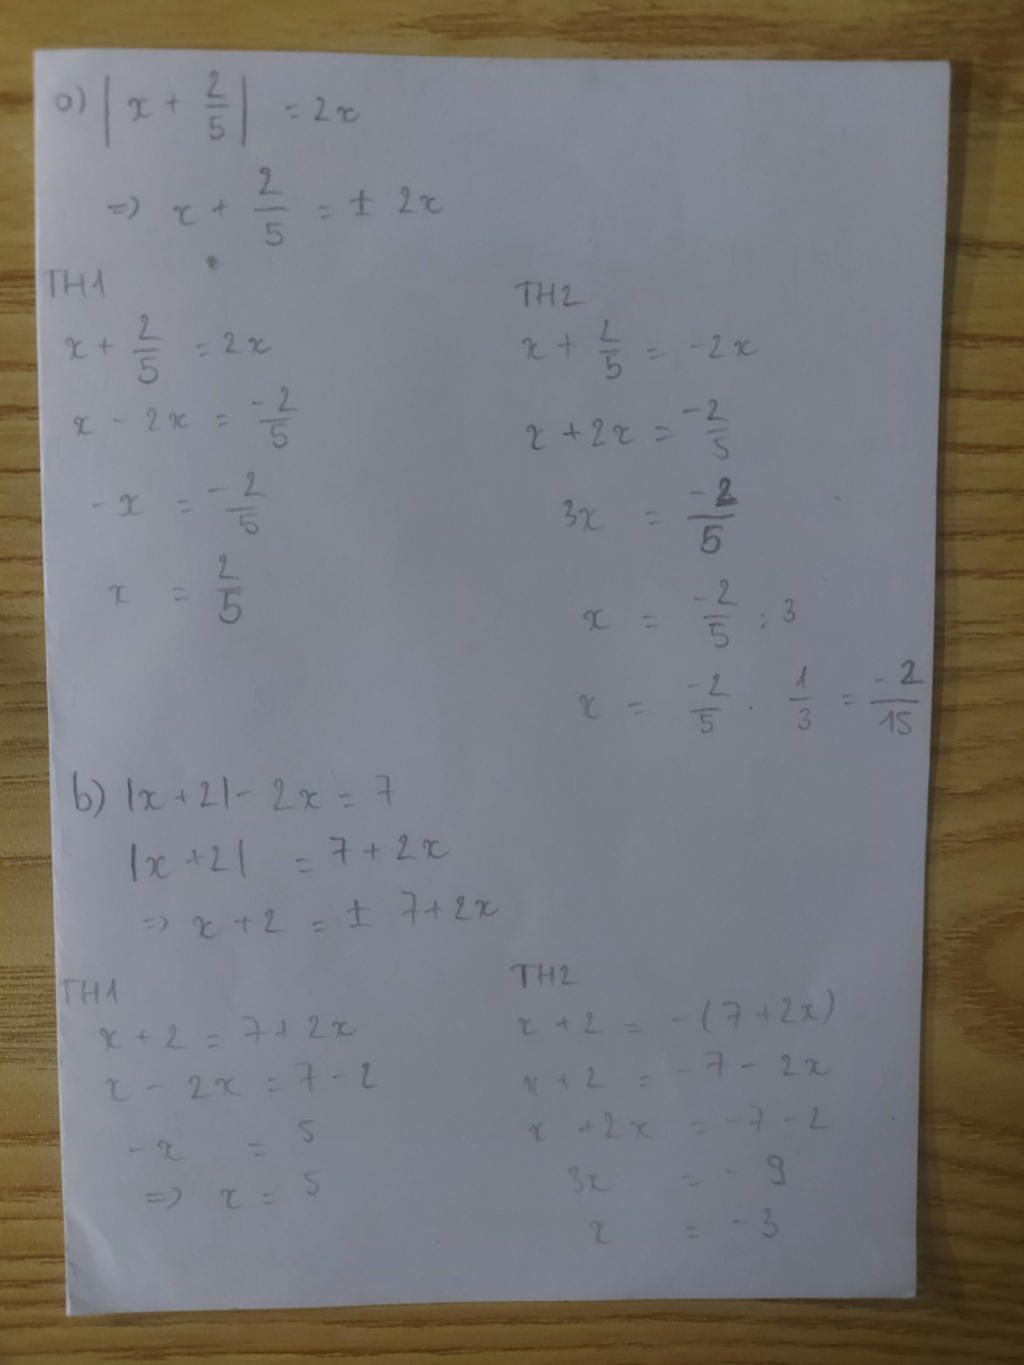 a) |x + 2/5| = 2x
=> x + 2/5 = ± 2x
TH1
x + 2/5 = 2x
x - 2x = -2/5
-x = -2/5
x = 2/5
TH2
x + 2/5 = -2x
x + 2x = -2/5
3x = -2/5
x = -2/5 : 3
x = -2/5 . 1/3 = -2/15
b) |x + 2| - 2x = 7
|x + 2| = 7 + 2x
=> x + 2 = ± 7 + 2x
TH1
x + 2 = 7 + 2x
x - 2x = 7 - 2
-x = 5
=> x = 5
TH2
x + 2 = -(7 + 2x)
x + 2 = -7 - 2x
x + 2x = -7 - 2
3x = -9
x = -3